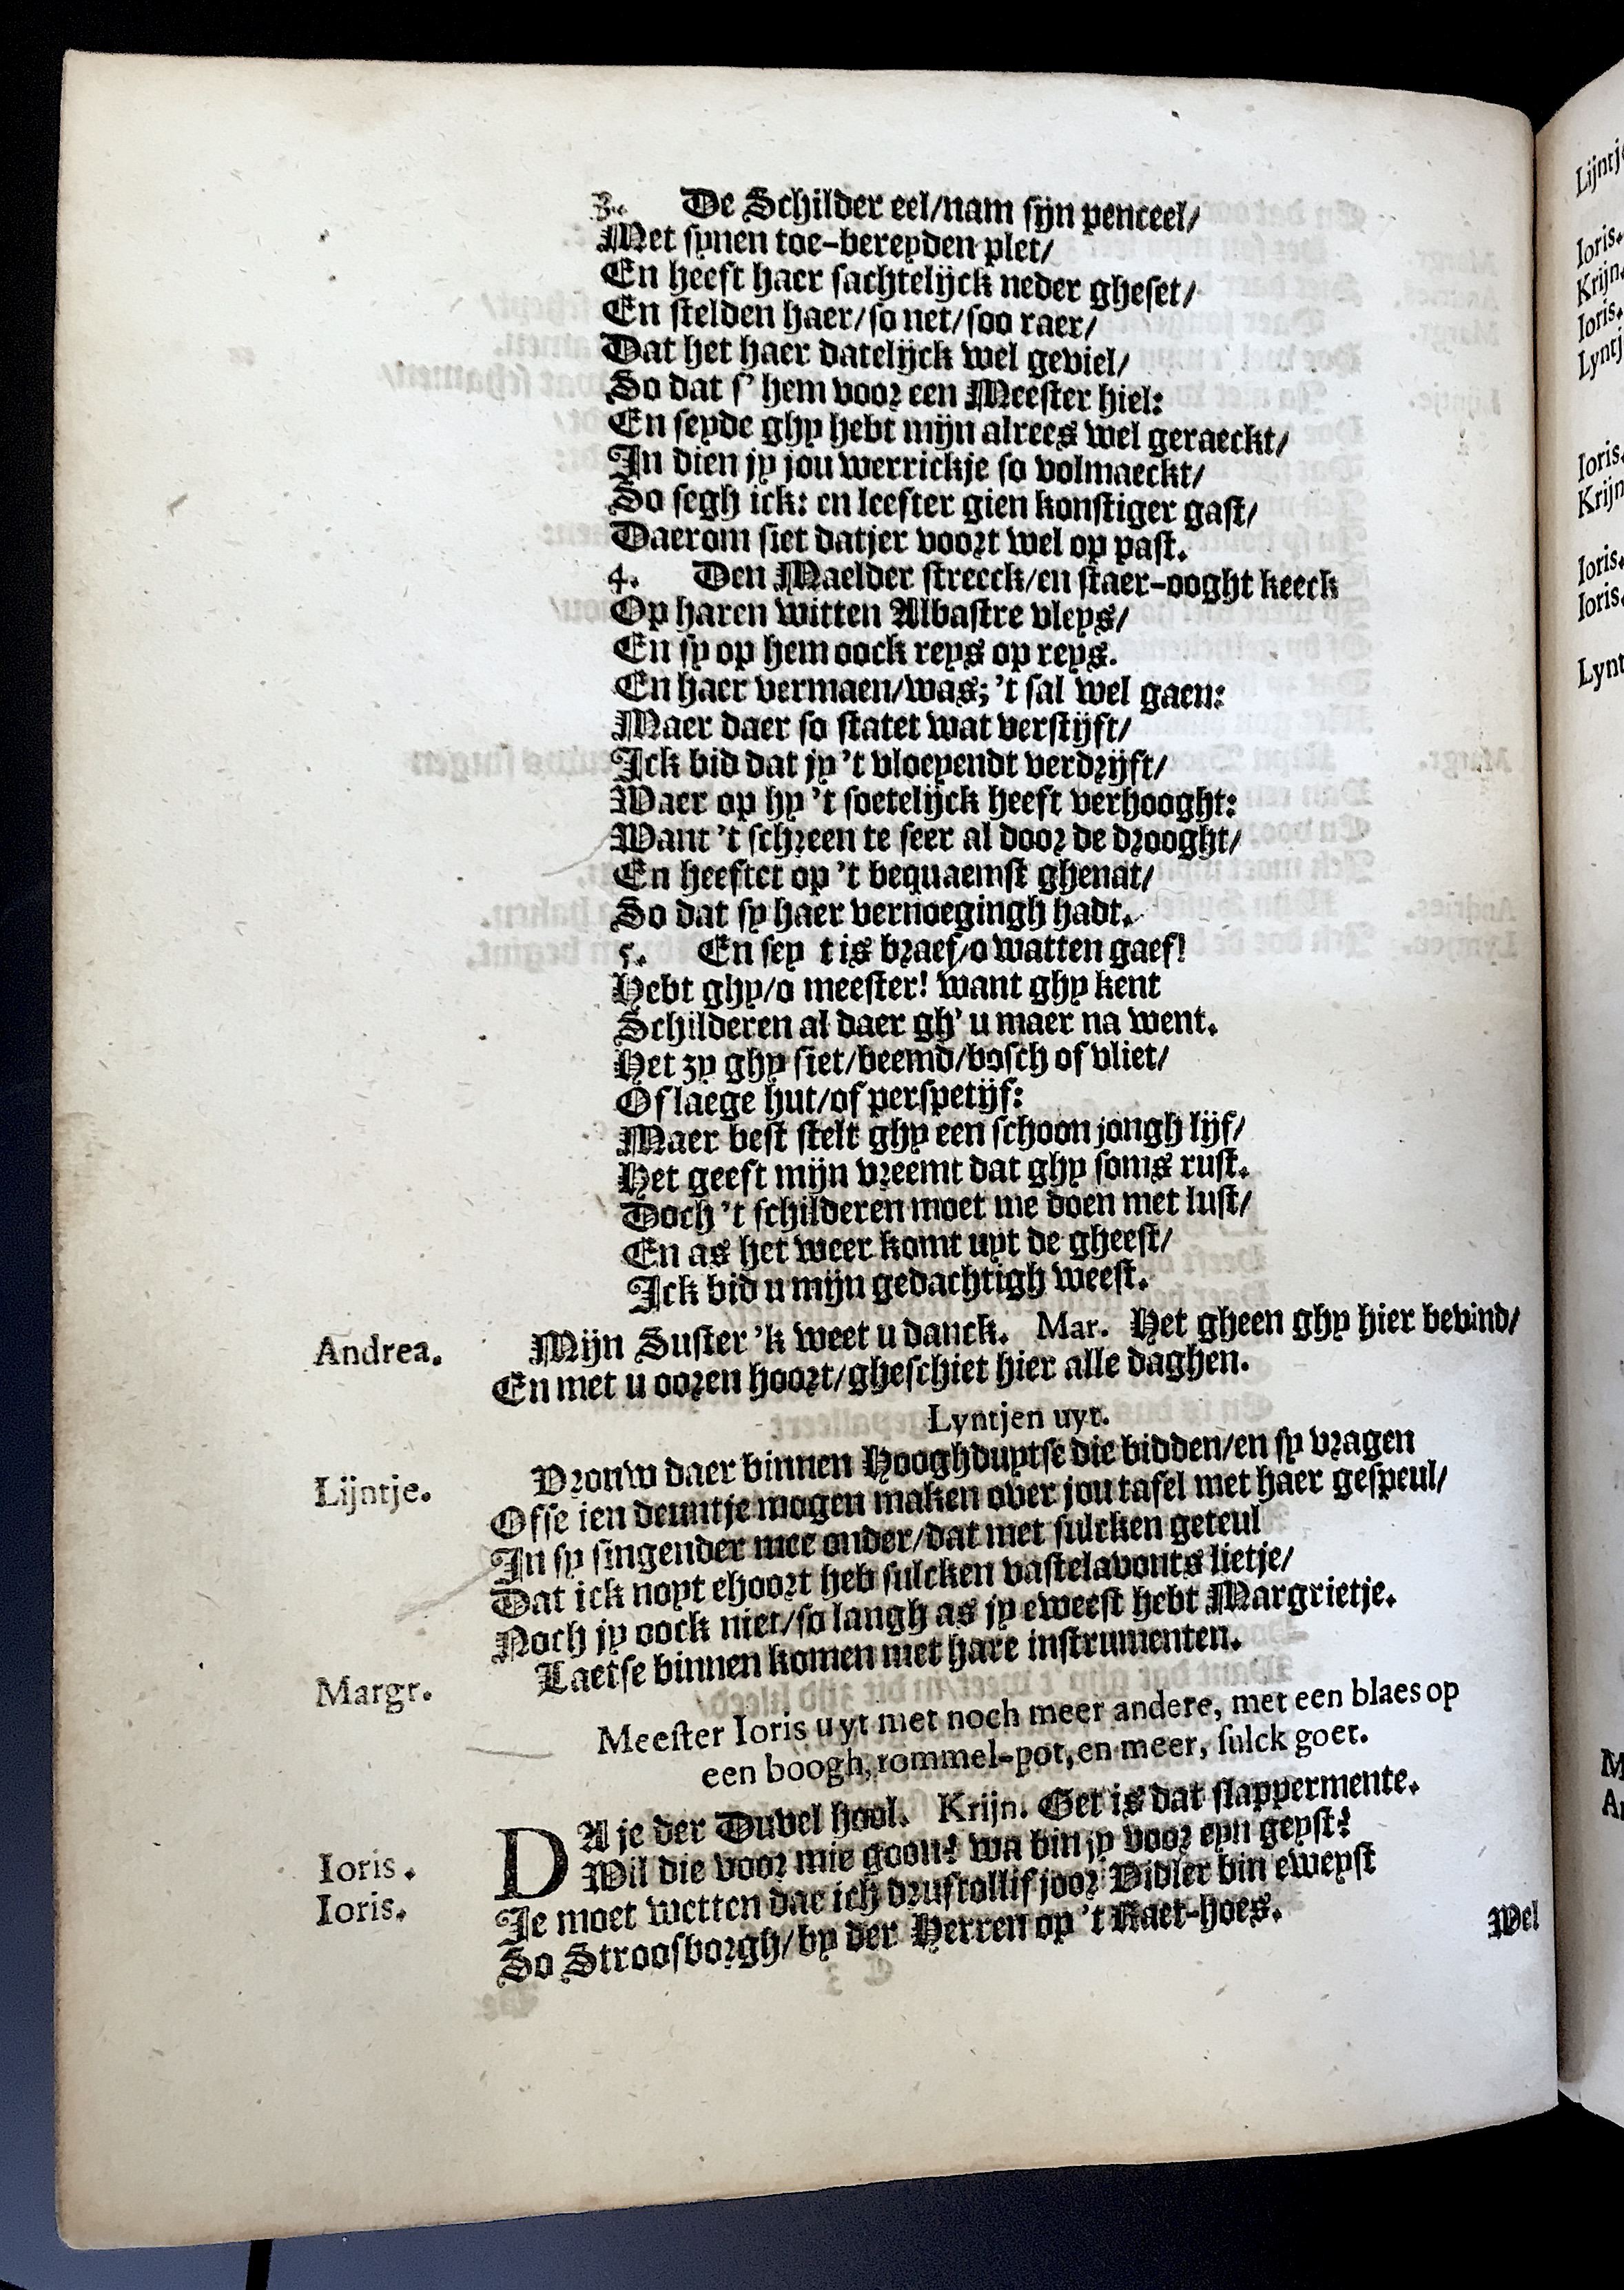 3. De Schilder eel/nam sijn penceel/
Met synen toe-bereyden plet/
En heeft haer sachtelijck neder gheset/
En stelden haer/so net/soo raer/
Dat het haer datelijck wel geviel/
So dat s' hem voor een Meester hiel:
En seyde ghy hebt mijn alrees wel geraeckt/
In dien jy jou werrickje so volmaeckt/
So segh ick: en leefter gien konstiger gast/
Daerom siet datjer voort wel op past.
4. Den Maelder streeck/en staer-ooght keeck
Op haren witten Albastre vleys/
En sy op hem oock reys op reys.
En haer vermaen/was; 't sal wel gaen:
Maer daer so statet wat verstijft/
Ick bid dat jy 't vloeyendt verdrijft/
Waer op hy 't soetelijck heeft verhooght:
Want 't schreen te seer al door de drooght/
En heeftet op 't bequaemst ghenat/
So dat sy haer vernoegingh hadt.
5. En sey t is braef/o watten gaef!
Hebt ghy/o meester! want ghy kent
Schilderen al daer gh' u maer na went.
Het zy ghy siet/beemd/bosch of vliet/
Of laege hut/of perspetijf:
Maer best stelt ghy een schoon jongh lijf/
Het geeft mijn vreemt dat ghy soms rust.
Doch 't schilderen moet me doen met lust/
En as het weer komt uyt de gheest/
Ick bid u mijn gedachtigh weest.
Andrea. Mijn Suster 'k weet u danck. Mar. Het gheen ghy hier bevind/
En met u ooren hoort/gheschiet hier alle daghen.
Lyntjen uyt.
Lijntje. Vrouw daer binnen Hooghduytse die bidden/en sy vragen
Ofse ien deuntje mogen maken over jou tafel met haer gespeul/
In sy singender mee onder/dat met sulcken geteul
Dat ick noyt ehoort heb sulcken vastelavonts lietje/
Noch jy oock niet/so langh as jy eweest hebt Margrietje.
Margr. Laetse binnen komen met hare instrumenten.
Meester Ioris uyt met noch meer andere, met een blaes op
een boogh, rommel-pot, en meer, sulck goet.
Ioris. DA je der Duvel hool. Krijn. Get is dat slappermente.
Ioris. Wil die voor mie goon! wa bin jy voor eyn geyst!
Je moet wetten dae ich drustollif joor Vidler bin eweyst
So Stroosborgh/by der Herren op 't Raet-hoes.
Wel
Lijntj
Ioris.
Krijn.
Ioris.
Lyntj
Ioris.
Krijn
Ioris.
Ioris.
Lynt